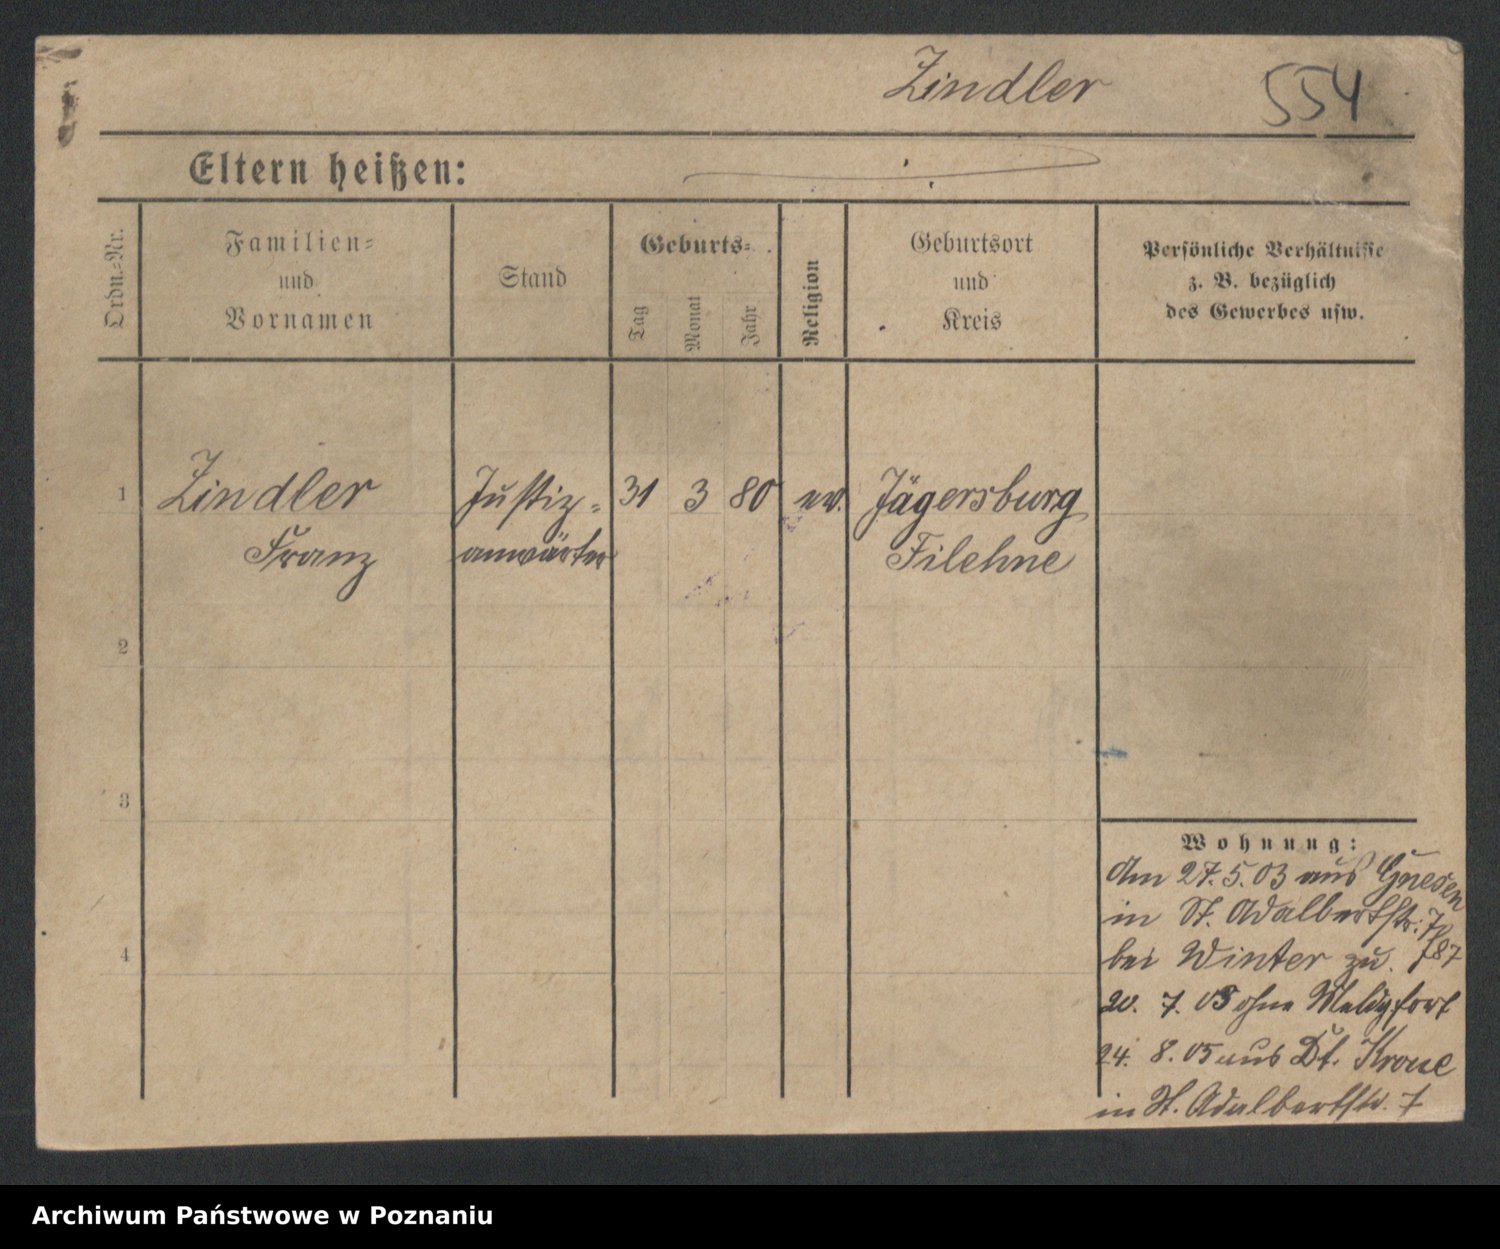 Zindler 554
Eltern heißen:
Ordn.-Nr.
Familien-
und
Vornamen
Stand
Geburts-
Tag
Monat
Jahr
Religion
Geburtsort
und
Kreis
Persönliche Verhältnisse
z. B. bezüglich
des Gewerbes usw.
1 Zindler Justiz- 31 3 80 ev. Jägersburg
Franz anwärter Filehne
2
3
4
Wohnung:
Am 27.5.03 aus Gnesen
in St. Adalbertstr. 7
bei Winter zu.
20. 7. 03 ohne Meldg fort
24. 8. 05 aus Dt. Krone
in St. Adalbertstr. 7
Archiwum Państwowe w Poznaniu